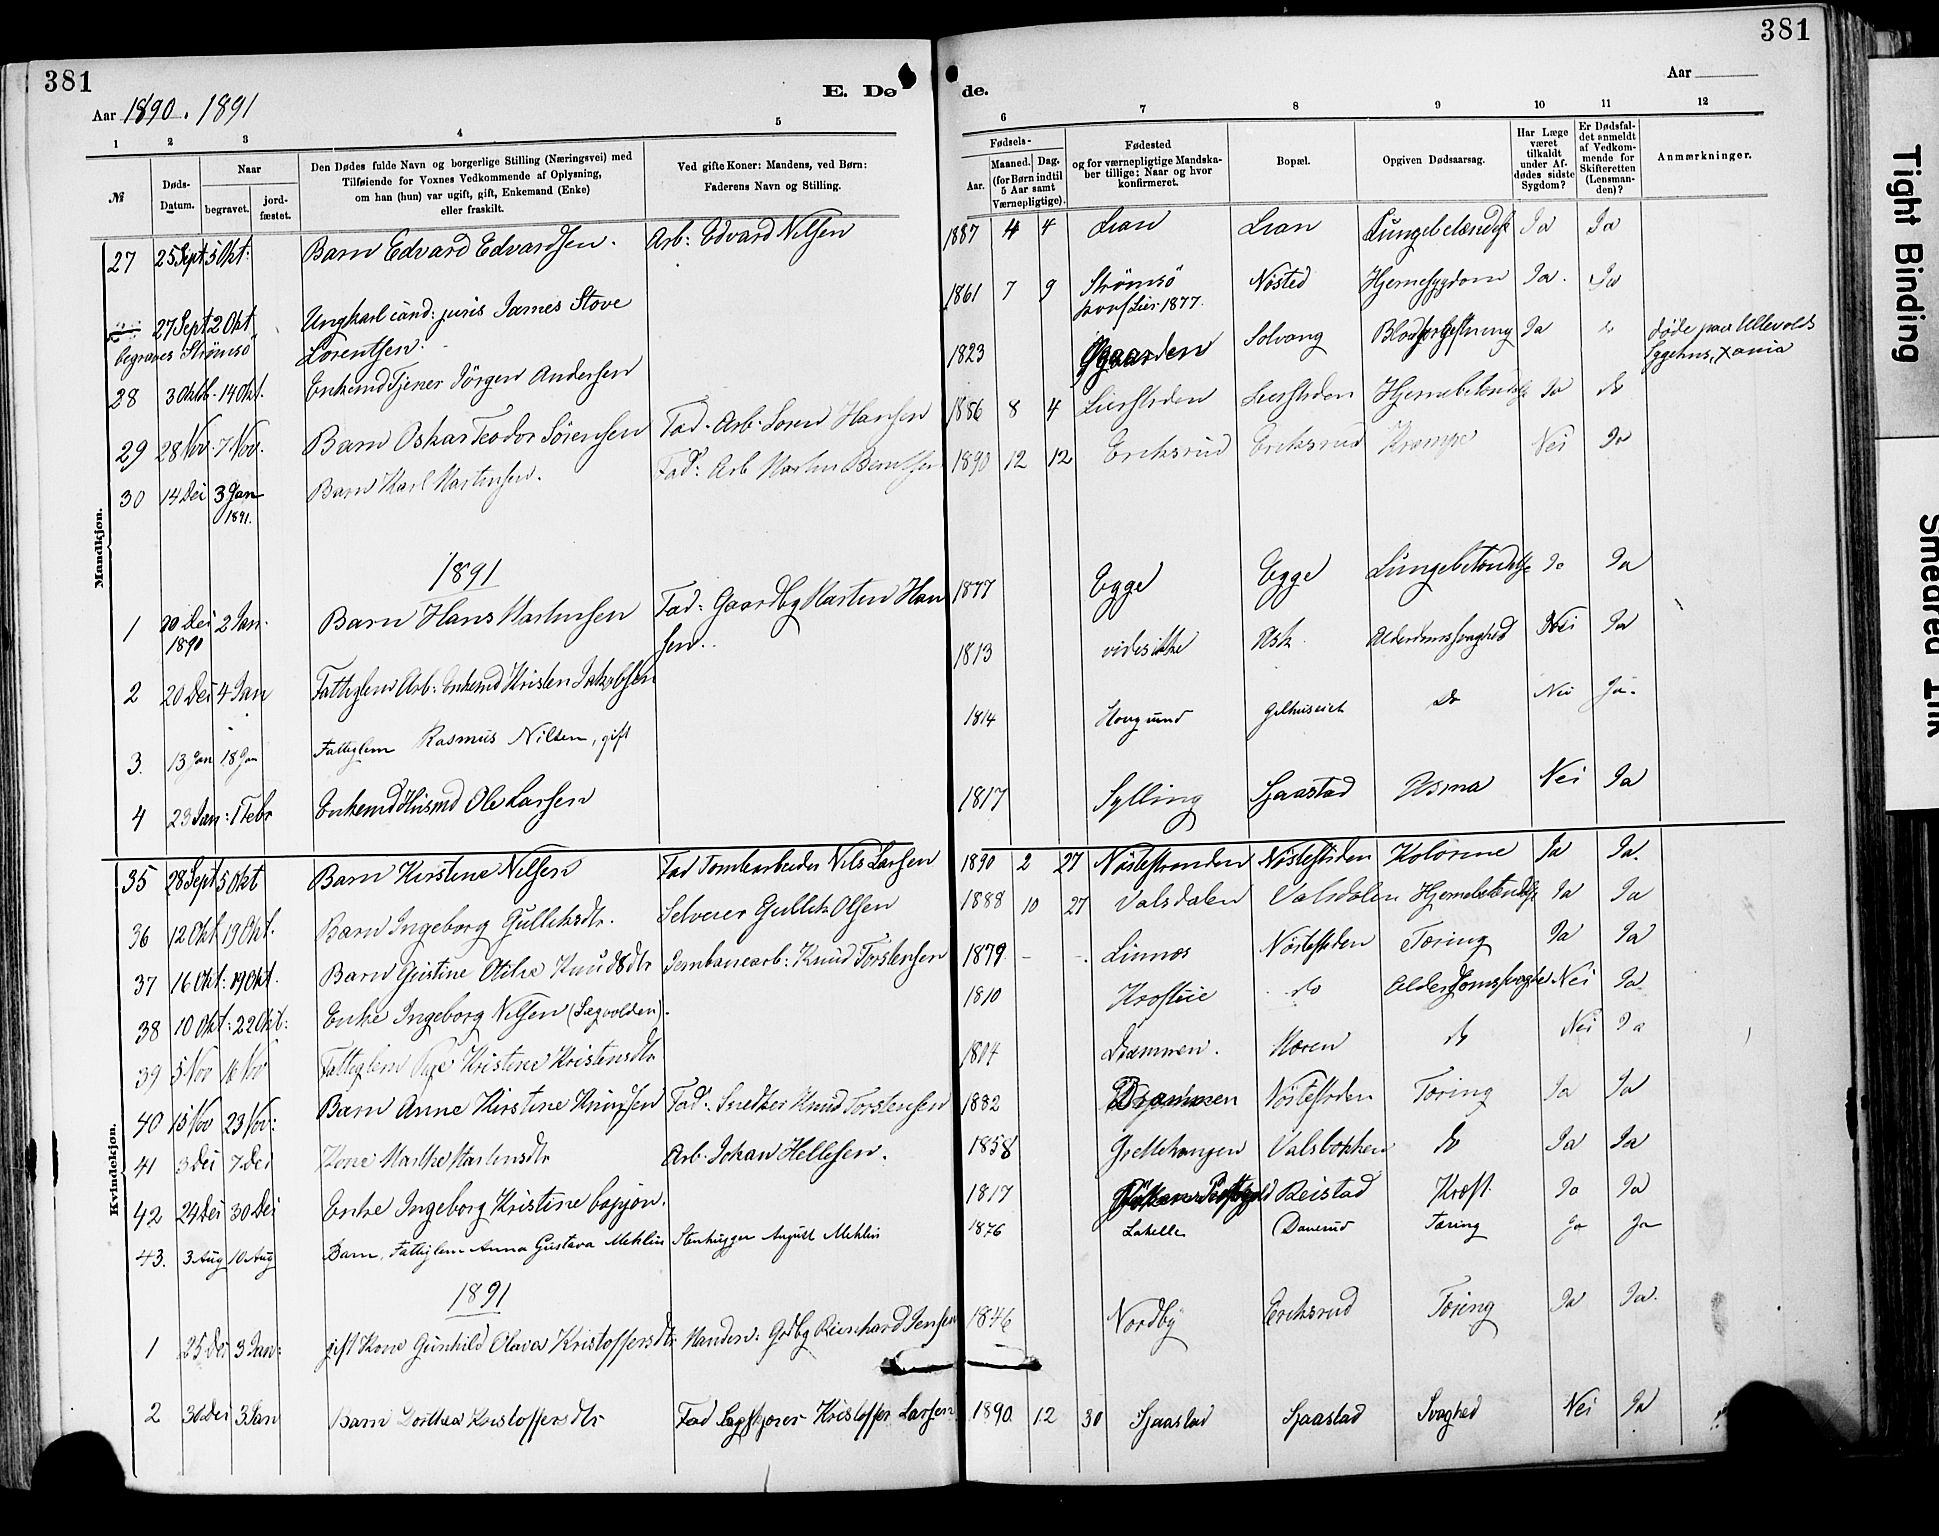 381
Aar 1890. 1891
E. Dø
1 2 3 4 5
№
Døds-Datum.
Naar
begravet.
jord-fæstet.
Den Dødes fulde Navn og borgerlige Stilling (Næringsvei) med
Tilføiende for Voxnes Vedkommende af Oplysning,
om han (hun) var ugift, gift, Enkemand (Enke)
eller fraskilt.
Ved gifte Koner: Mandens, ved Børn:
Faderens Navn og Stilling.
Mandkjøn.
27 25 Sept 5 Okt: Barn Edvard Edvardsen. Arb: Edvard Nilsen
27 Sept 2 Okt Ungkarl cand: juris James Stove
begraves Strømsö Lorentsen.
28 3 Oktb. 14 Okt. Enkemd Tjener Jörgen Andersen
29 28 Nov. 7 Nov. Barn Oskar Teodor Sörensen Fad. Arb. Soren Hansen
30 14 Dei 3 Jan 1891. Barn Karl Martinsen. Fad: Arb Martin Berntsen
1891
1 20 Dei 1890 2 Jan. Barn Hans Martinsen Fad: Gaardbg Marten Hansen..
2 20 Dei 4 Jan Fattiglem Arb: Enkemd Kristen Jakobsen
3. 13 Jan 18 Jan Fattiglem Rasmus Nilsen, gift
4 23 Jan: 1 Febr Enkemd Husmd Ole Larsen
Kvindekjøn.
35 28 Sept 5 Okt Barn Kirstine Nilsen Fad Tomtearbeider Nils Larsen
36 12 Okt 19 Okt. Barn Ingeborg Gulliksdtr. Selveier Gullik Olsen
37 16 Okt: 19 Okt. Barn Gustine Otilie Knudsdtr Jernbanearb: Knud Torstensen
38 10 Okt: 22 Okt: Enke Ingeborg Nilsen (Lægvolden).
39 5 Nov 16 Nov Fattiglem Pige Kristine Kristensdtr
40 15 Nov 23 Nov: Barn Anne Kirstine Knudsen Fad: Snedker Knud Torstensen
41 3 Dei 7 Dei Kone Marthe Martinsdtr Arb. Johan Hellesen.
42 24 Dei 30 Dei Enke Ingeborg Kristine Caspjon.
43. 3 Aug 10 Aug Barn, Fattiglem Anna Gustava Mehlin Stenhugger August Mehlin
1891
1 25 Dei 3 Jan: gift Kone Gunhild Olava Kristoffersdtr Manden: Gdbg Reinhard Jensen
2 30 Dei 3 Jan Barn Dorthea Kristoffersdtr Fad Kristoffer Larsen
381
Aar
de.
6 7 8 9 10 11 12
Fødsels-
Aar.
Maaned.
Dag.
(for Børn indtil
5 Aar samt
Værnepligtige).
Fødested
og for værnepligtige Mandska-
ber tillige: Naar og hvor
konfirmeret.
Bopæl.
Opgiven Dødsaarsag.
Har Læge
været
tilkaldt
under Af-
dødes sidste
Sygdom?
Er Dødsfal-
det anmeldt
af Vedkom-
mende for
Skifteretten
(Lensman-
den)?
Anmærkninger.
1887 4 4 Lian Lian Lungebetændelse Ja Ja
1861 7 9 Strømsö konf Lier 1877. Nösted Hjernesygdom Ja. Ja
1823 Solvang Blodforgiftning Ja do döde paa Ullevolds Sygehus, Xania
1886 8 4 Lierstrden Lierstrden Hjernebetændelse Ja do
1890 12 12 Eriksrud Eriksrud Krampe Nei Ja
1877 Egge Egge Lungebetændelse Ja Ja
1813 vides ikke Ask Alderdomssvaghed Nei Ja
1814 Hougsund Gilhuseiet do Nei Ja.
1817 Sylling Sjaastad Asma Nei Ja
1890 2 27 Nöstestranden Nöstestrden Kolorine Ja Ja.
1888 10 27 Valsdalen Valsdalen Hjernebetændelse Ja Ja
1879 - - Linnæs Nöstestrden Tæring Ja Ja
1810 do Alderdomssvaghed Nei Ja
1804 Drammen. Moren do Nei Ja
1882 Drammen Nöstestrden Tæring Ja Ja
1858 Valsbakken do Ja Ja
1817 Reistad Kræft. Ja Ja
1876 Lahelle Danerud Tæring Ja Ja
1846 Nordby Eriksrud Tæring Ja Ja.
1890. 12 30 Sjaastad Sjaastad Svaghed Nei Ja
Tight Binding
Smeared Ink